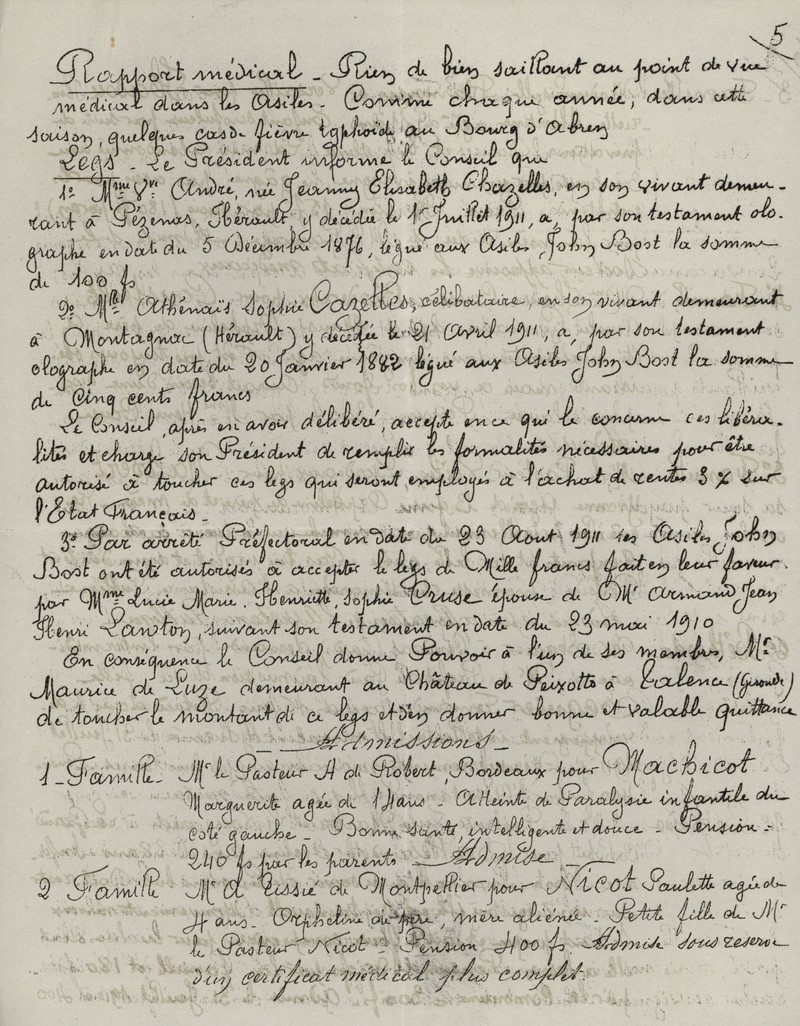 5
Rapport médical - Rien de bien saillant au point de vue
médical dans les Asiles - Comme chaque année, dans cette
saison, quelques cas de fièvre typhoïde au Bourg d'Abren
Legs - Le Président informe le Conseil que
1º Mme Vve André, née Jeanny Elisabeth Chazelles, en son vivant demeu-
rant à Pézenas, Hérault, y décédée le 1r Juillet 1911, a, par son testament olo-
graphe en date du 5 Décembre 1876, légué aux Asiles John Bost la somme
de 100 fs
2º Mlle Athénaïs Sophie Cazelles, célibataire, en son vivant demeurant
à Montagnac (Hérault) y décédée le 21 Avril 1911, a, par son testament
olographe en date du 20 Janvier 1882 légué aux Asiles John Bost la somme
de Cinq cents francs
Le Conseil, après en avoir délibéré, accepte en ce qui le concerne ces libéra-
lités et charge son Président de remplir les formalités nécessaires pour être
autorisé à toucher ces legs qui seront employés à l'achat de rentes 3 % sur
l'Etat Français -
3º Par arrêté Préfectoral en date du 23 Aout 1911 les Asiles John
Bost ont été autorisés à accepter le legs de Mille francs fait en leur faveur
par Mme Lucie Marie, Henriette, Sophie Cruse épouse de Mr Armand Jean
Henri Lawton, suivant son testament en date du 23 mai 1910
En conséquence le Conseil donne Pouvoir à l'un de ses membres, Mr
Maurice de Luze demeurant au Château de Peixotto à Talence (Gironde)
de toucher le montant de ce legs et d'en donner bonne et valable quittance
- Admissions -
1 - Famille - Mr le Pasteur H de Robert, Bordeaux pour Machicot
Marguerite agée de 14 ans - Atteinte de Paralysie infantile du
coté gauche - Bonne santé, intelligente et douce - Pension =
240 fs par les parents - Admise -
2 Famille Mr A Tissié de Montpellier pour Nicot Paulette agée de
4 ans - Orpheline de père, mère aliénée - Petite fille de Mr
le Pasteur Nicot - Pension 400 fs Admise sous reserve
d'un certificat médical plus complet.